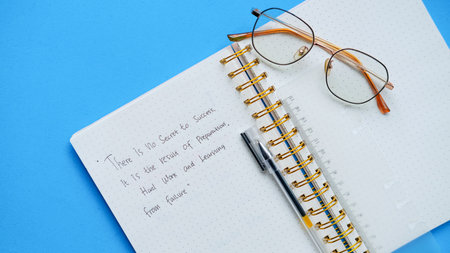 "There Is no Secret to Success.
It Is the result of Preparation,
Hard Work and Learning
from failure"